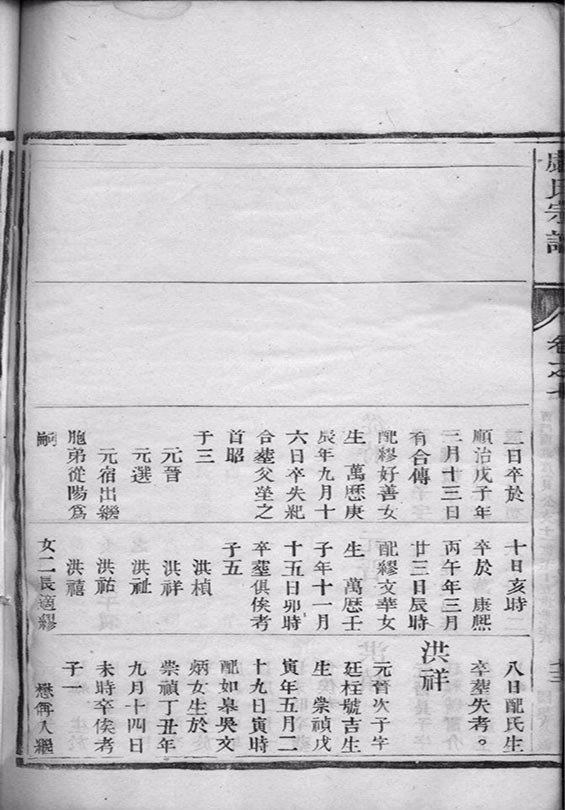 氏宗譜
卷之七
二日卒於
順治戊子年
二月十三日
有合傳
配繆好善女
生 萬歷庚
辰年九月十
六日卒失紀
合塟父塋之
首昭
子三
元晉
元選
元宿出繼
胞弟從陽爲
嗣
十日亥時
卒於 康熙
丙午年三月
廿三日辰時
配繆文華女
生 萬歷壬
子年十一月
十五日卯時
卒塟俱俟考
子五
洪楨
洪祥
洪祉
洪祐
洪禧
女二長適繆
八日配氏生
卒塟失考。
洪祥
元晉次子字
廷柱號吉生
生 崇禎戊
寅年五月二
十九日寅時
配如皋吳文
炳女生於
崇禎丁丑年
九月十四日
未時卒俟考
子一
懋儕入繼